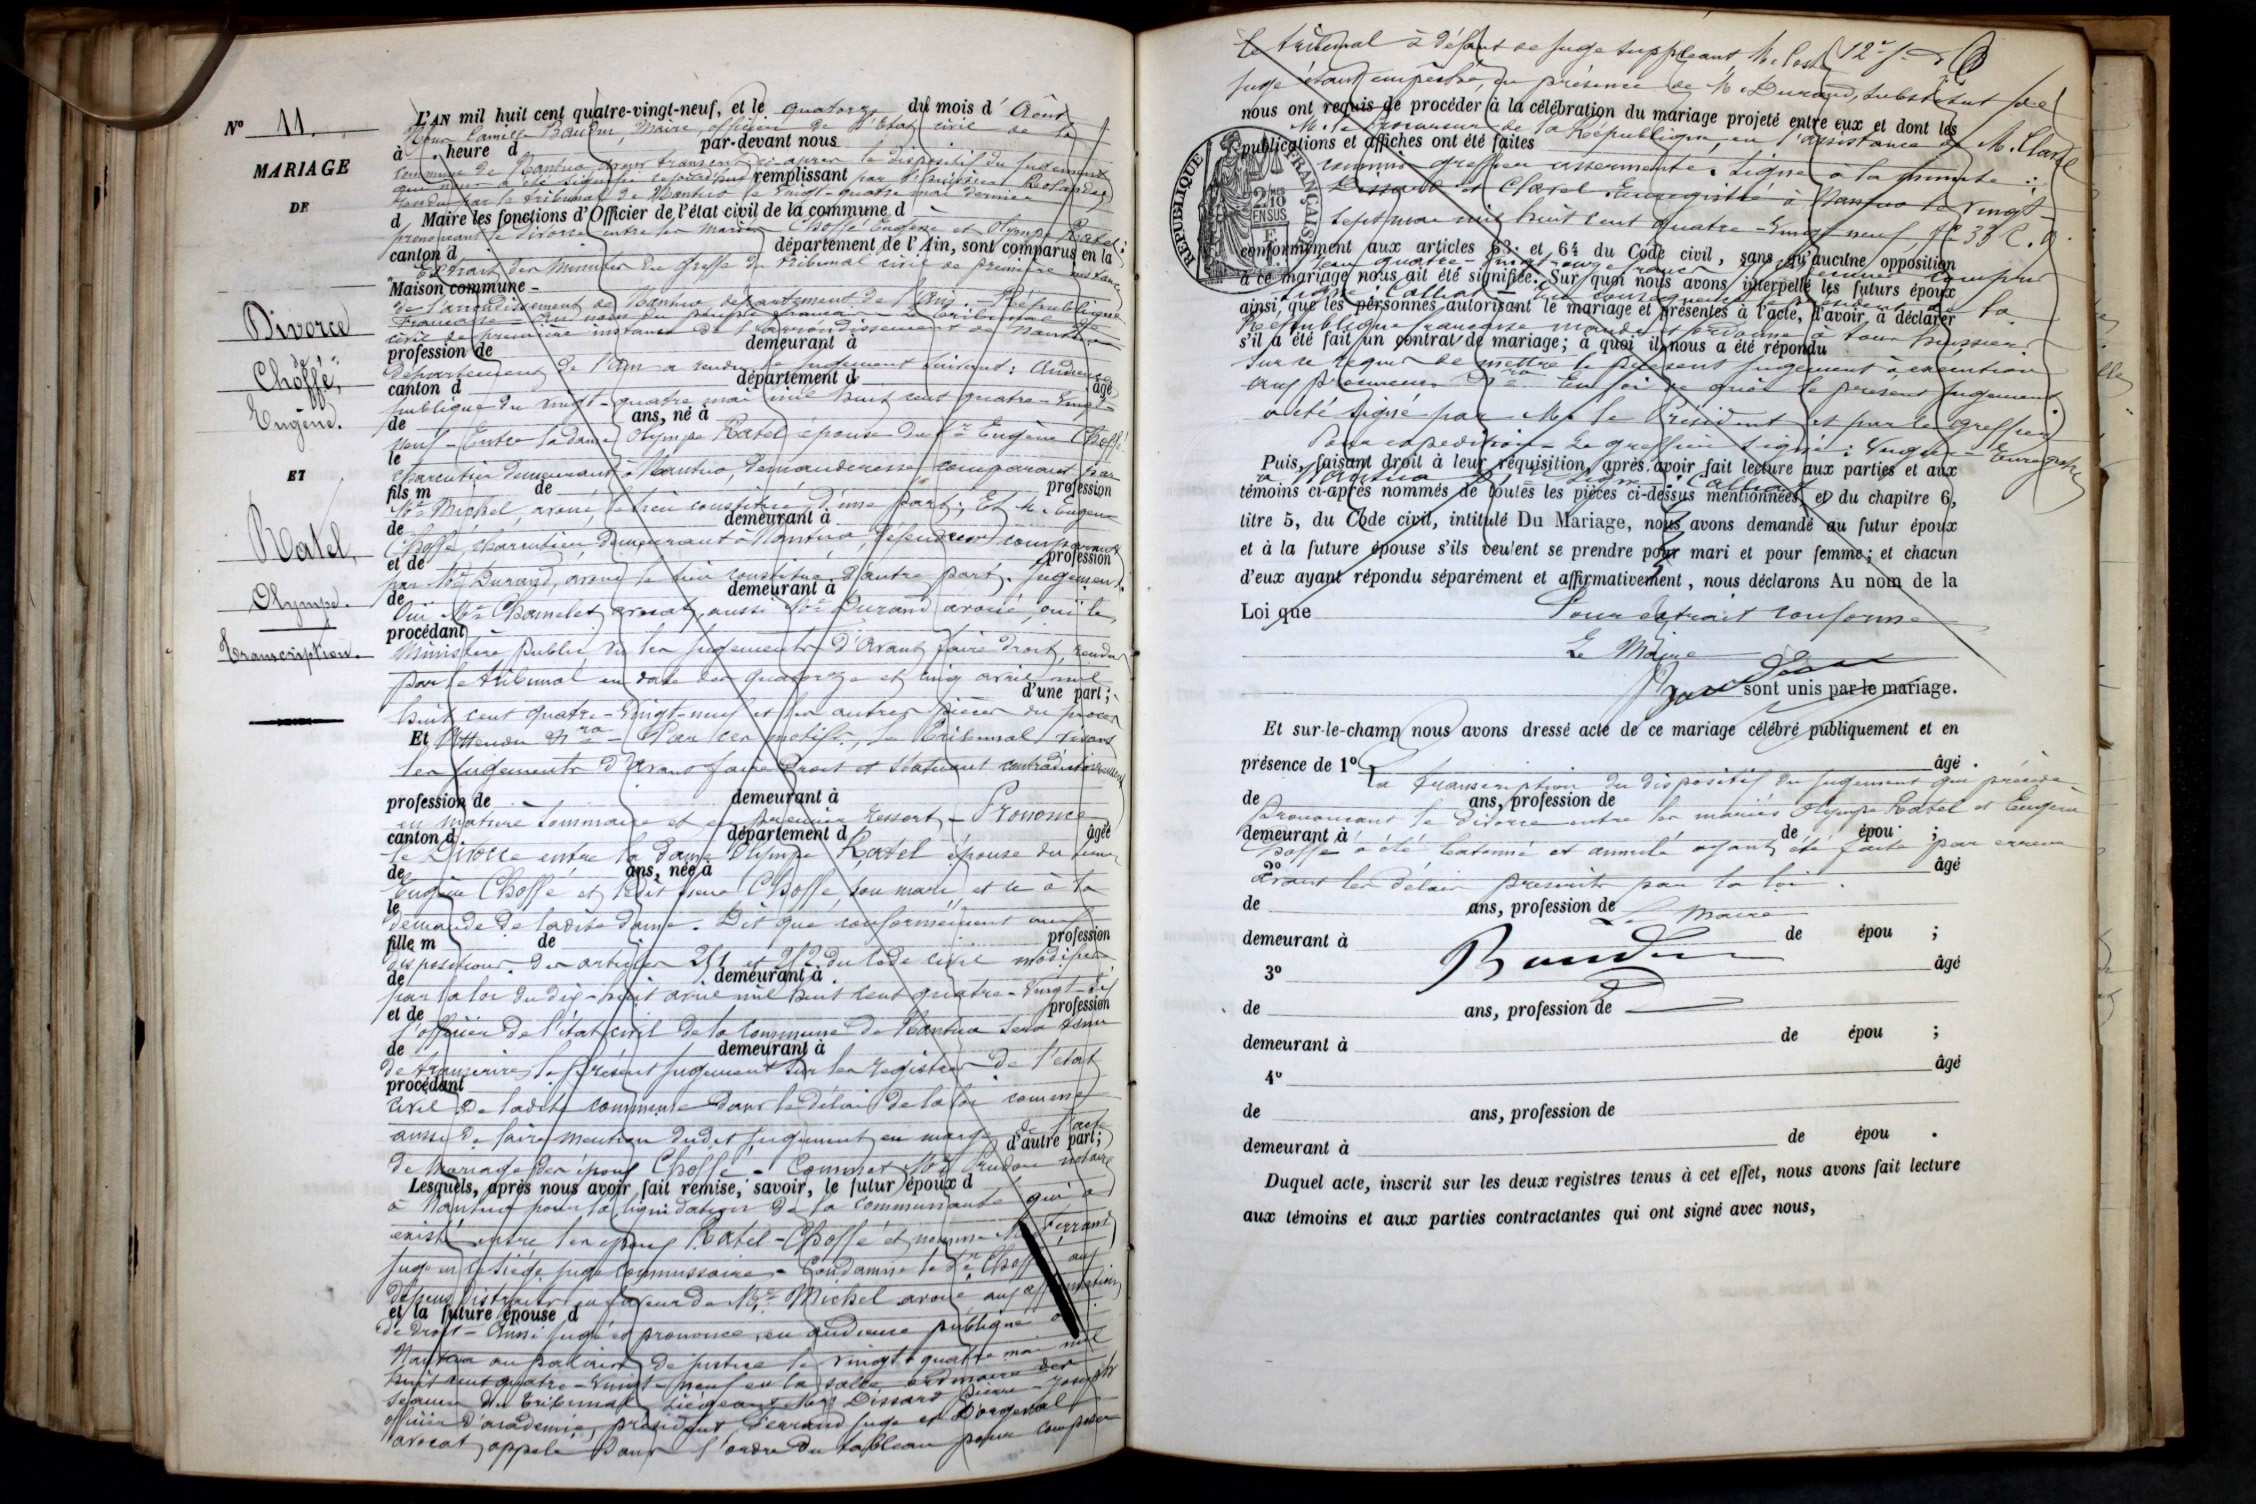 N° 11.
MARIAGE
DE
Divorce
de
Choffé,
Eugène.
ET
Ratel,
Olympe.
Transcription.
L'AN mil huit cent quatre-vingt-neuf, et le quatorze du mois d'Août
Nous Camille Baudin, Maire, officier de l'Etat civil de la
à heure d par-devant nous
commune de Nantua, avons transcrit ci-après le dispositif du jugement
qui nous a été signifié cejourd'hui par
remplissant
rendu par le tribunal de Nantua le vingt-quatre mai dernier
d Maire les fonctions d'Officier de l'état civil de la commune d
prononçant le divorce entre les mariés Choffé Eugène et Olympe Ratel:
canton d département de l'Ain, sont comparus en la
Extrait des minutes du Greffe du tribunal civil de première instance
Maison commune -
de l'arrondissement de Nantua, département de l'Ain. - République
Française - Au nom du peuple français - Le tribunal
civil de première instance de l'arrondissement de Nantua
profession de demeurant à
département de l'Ain a rendu le jugement suivant: Audience
canton d département d âgé
publique du vingt-quatre mai mil huit cent quatre-vingt-
de ans, né à
neuf - Entre la dame Olympe Ratel épouse du Sr Eugène Choffé
le
charcutier demeurant à Nantua, demanderesse comparant par
fils m de profession
Me Michel, avoué, de lui constitué, d'une part; Et M. Eugène
de demeurant à
Choffé, charcutier, demeurant à Nantua, défendeur comparant
et de profession
par Me Durand, avoué de lui constitué, d'autre part. Jugement.
de demeurant à
Oui Me Chamelet avocat, aussi Me Durand avoué, ouï le
procédant
Ministère public Vu les jugements d'avant faire droit, rendus
par le tribunal en date des quatorze et cinq avril mil
d'une part;
huit cent quatre-vingt-neuf et les autres pièces du procès
Et Attendu &ra - Par ces motifs, Le Tribunal visant
les jugements d'avant faire droit et statuant contradictoirement
profession de demeurant à
en matière sommaire et en premier ressort - Prononce
canton d département d âgée
le Divorce entre la dame Olympe Ratel épouse du sieur
de ans, née à
Eugène Choffé et ledit sieur Choffé son mari, et ce à la
le
demande de ladite dame. Dit que conformément aux
fille m de profession
dispositions des articles 251 et 252 du Code civil modifiés
de demeurant à
par la loi du dix-huit avril mil huit cent quatre-vingt-six
et de profession
l'officier de l'état civil de la commune de Nantua sera tenu
de demeurant à
de transcrire le présent jugement sur les registres de l'état
procédant
civil de ladite commune dans le délai de la loi comme
aussi de faire mention dudit jugement en marge de l'acte
d'autre part;
de mariage des époux Choffé. Commet Me Prudon notaire
Lesquels, après nous avoir fait remise, savoir, le futur époux d
à Nantua pour la liquidation de la communauté qui a
existé entre les époux Ratel-Choffé et nomme M. Ferrand
juge en le siège juge commissaire. Condamne le Sr Choffé aux
dépens distraits en faveur de Me Michel avoué aux affirmations
et la future épouse d
de droit - Ainsi jugé et prononcé en audience publique à
Nantua au palais de justice le vingt-quatre mai mil
huit cent quatre-vingt-neuf en la salle ordinaire des
séances du tribunal siégeant MM. Dissard Pierre-Joseph
officier d'académie, président, Ferrand juge et Dorgeval
avocat appelé dans l'ordre du tableau pour composer
le tribunal à défaut de juge suppléant M.
juge étant empêché, en présence de M. Durand, substitut de
nous ont requis de procéder à la célébration du mariage projeté entre eux et dont les
M. le Procureur de la République, en l'assistance de M. Clarel
publications et affiches ont été faites
commis greffier assermenté. Signé à la minute:
Dissard et Clarel. Enregistré à Nantua le vingt-
sept mai mil huit cent quatre-vingt-neuf
conformément aux articles 63 et 64 du Code civil, sans qu'aucune opposition
à ce mariage nous ait été signifiée. Sur quoi nous avons interpellé les futurs époux
ainsi que les personnes autorisant le mariage et présentes à l'acte, d'avoir à déclarer
République française mande et ordonne à tous huissiers
s'il a été fait un contrat de mariage; à quoi il nous a été répondu
sur ce requis de mettre le présent jugement à exécution
aux procureurs &ra En foi de quoi le présent jugement
a été signé par M. le Président et par le greffier
Pour expédition - Le greffier signé:
Puis, faisant droit à leur réquisition, après avoir fait lecture aux parties et aux
à Nantua
témoins ci-après nommés de toutes les pièces ci-dessus mentionnées, et du chapitre 6,
titre 5, du Code civil, intitulé Du Mariage, nous avons demandé au futur époux
et à la future épouse s'ils veulent se prendre pour mari et pour femme; et chacun
d'eux ayant répondu séparément et affirmativement, nous déclarons Au nom de la
Loi que Pour extrait conforme
Le Maire
Baudin
sont unis par le mariage.
Et sur-le-champ nous avons dressé acte de ce mariage célébré publiquement et en
présence de 1° âgé
La transcription du dispositif du jugement qui précède
de ans, profession de
prononçant le divorce entre les mariés Olympe Ratel et Eugène
demeurant à de épou ;
Choffé a été bâtonné et annulé ayant été faite par erreur
2° âgé
avant les délais prescrits par la loi.
de ans, profession de
Le Maire
demeurant à de épou ;
Baudin
3° âgé
de ans, profession de
demeurant à de épou ;
4° âgé
de ans, profession de
demeurant à de épou .
Duquel acte, inscrit sur les deux registres tenus à cet effet, nous avons fait lecture
aux témoins et aux parties contractantes qui ont signé avec nous,
RÉPUBLIQUE FRANÇAISE
2/10
EN SUS